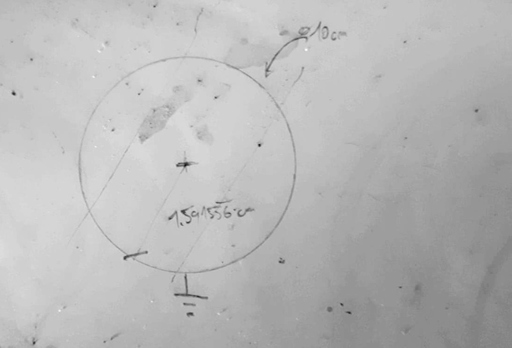 ⌀10cm
1.591556 cm